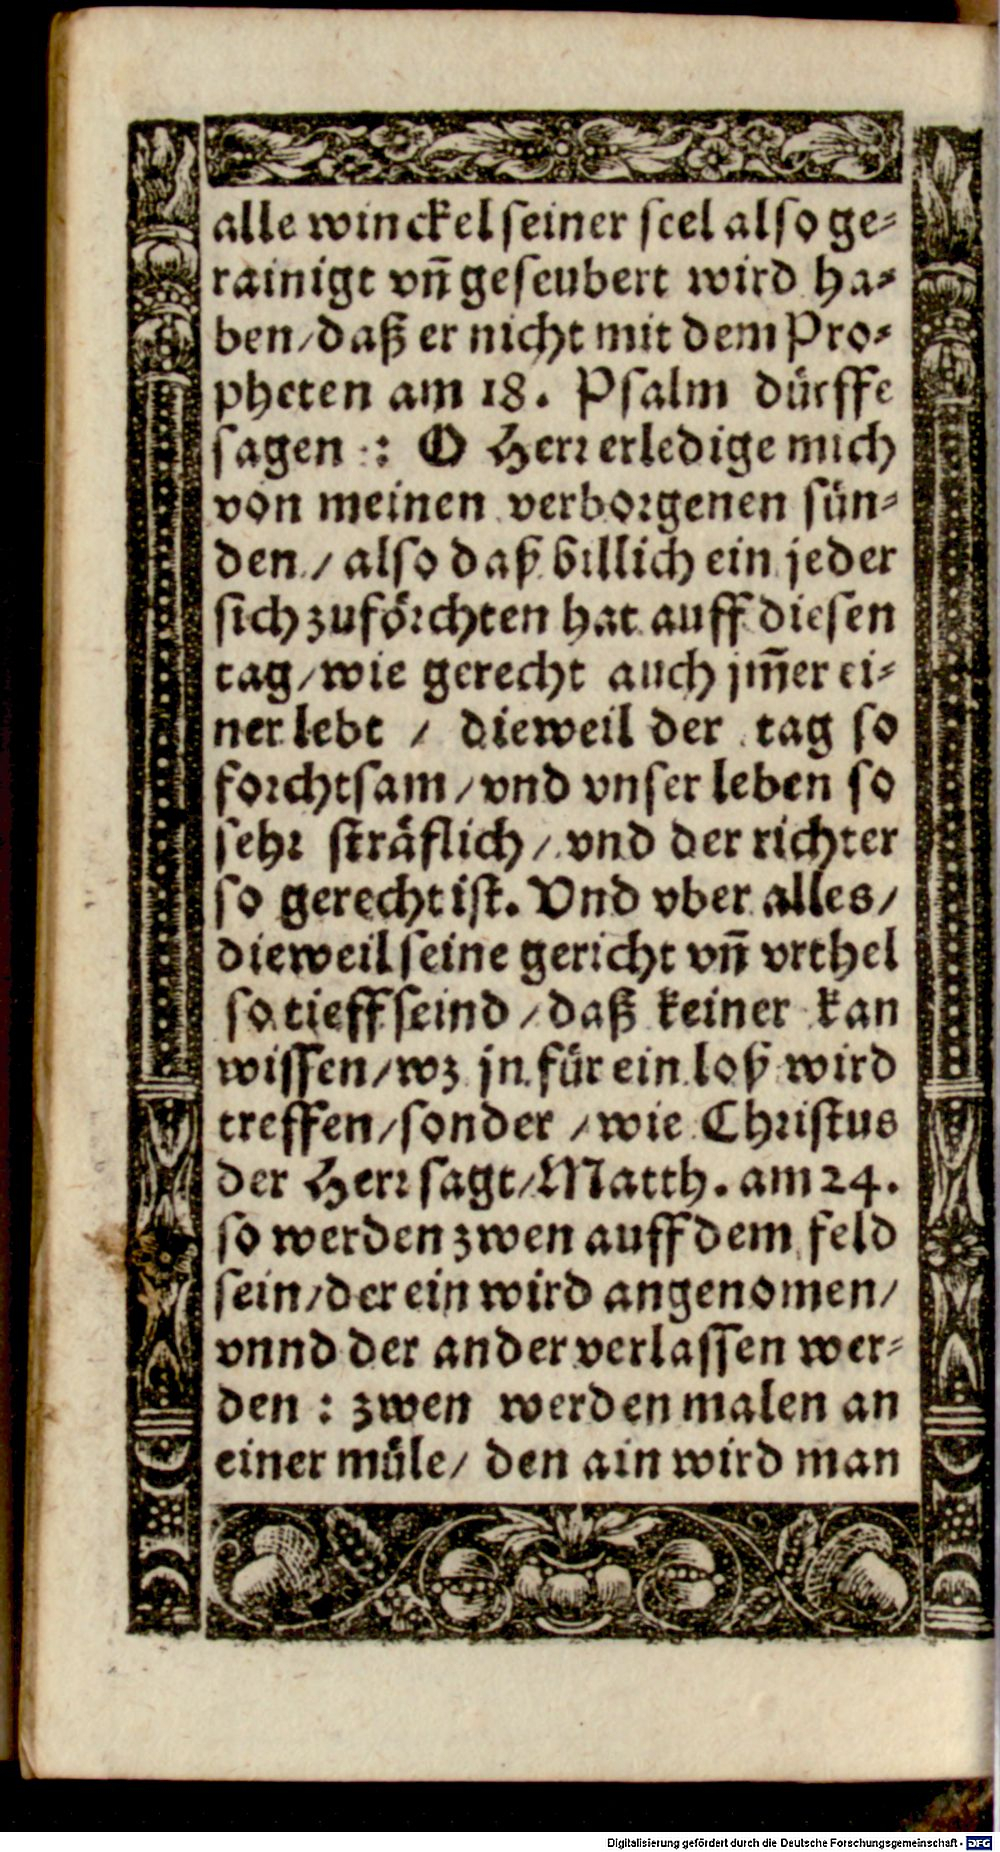 alle winckel seiner seel also ge⸗
rainigt vñ geseubert wird ha⸗
ben/daß er nicht mit dem Pro⸗
pheten am 18. Psalm dürffe
sagen : O Herr erledige mich
von meinen verborgenen sün⸗
den / also daß billich ein jeder
sich zuförchten hat auff diesen
tag/wie gerecht auch jm̃er ei⸗
ner lebt / dieweil der tag so
forchtsam/vnd vnser leben so
sehr sträflich/ vnd der richter
so gerecht ist. Vnd vber alles/
dieweil seine gericht vñ vrthel
so tieff seind/daß keiner kan
wissen/wz jn für ein loß wird
treffen/sonder /wie Christus
der Herr sagt/Matth. am 24.
so werden zwen auff dem feld
sein/der ein wird angenomen/
vnnd der ander verlassen wer⸗
den : zwen werden malen an
einer müle/ den ain wird man
Digitalisierung gefördert durch die Deutsche Forschungsgemeinschaft - DFG